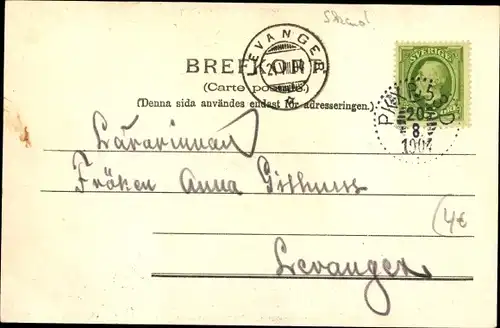 Skand
SVERIGE
5
LEVANGER
21 VIII 04
BREFKORT
(Carte postale.)
(Denna sida användes endast för adresseringen.)
20
8
1904
Lärarinnan
Fröken Anna
Levanger
4€